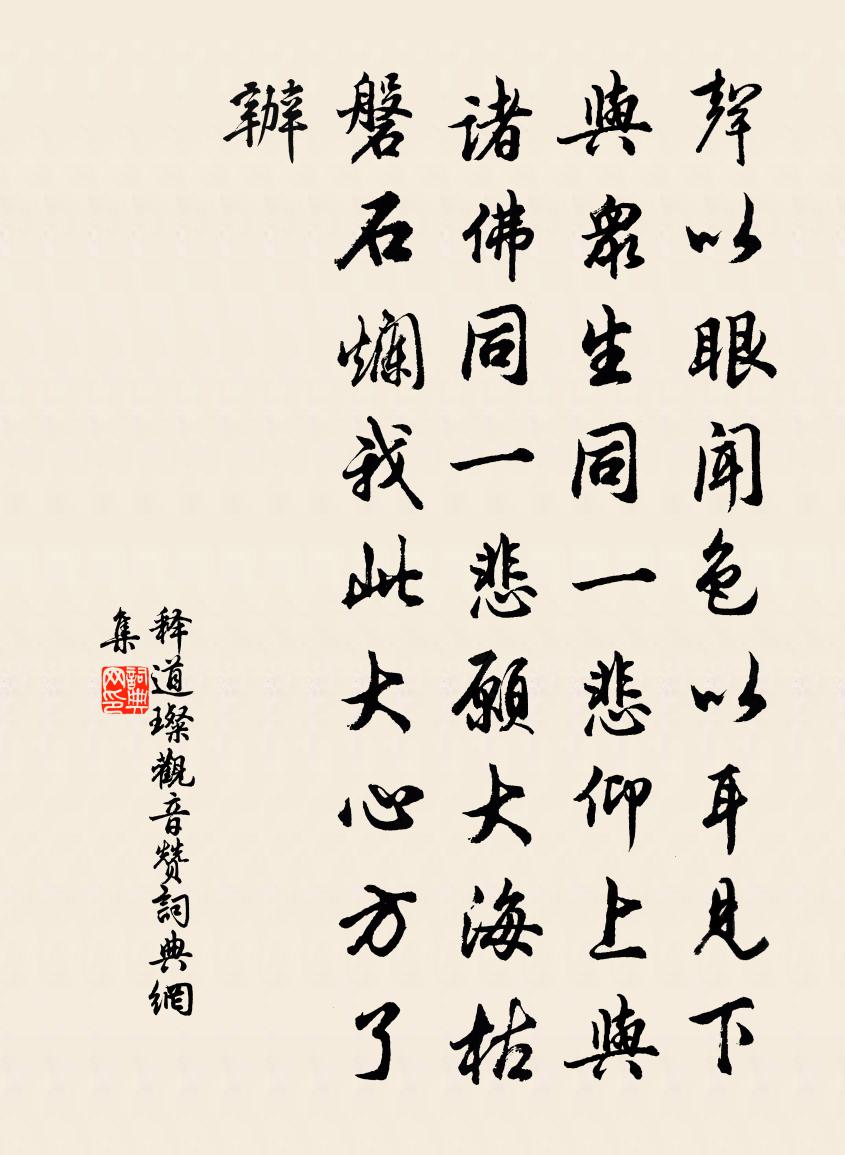 聲以眼聞色以耳見下
與衆生同一悲仰上與
諸佛同一悲願大海枯
磐石爛我此大心方了
辦
释道璨觀音赞詞典網
集
詞典网印